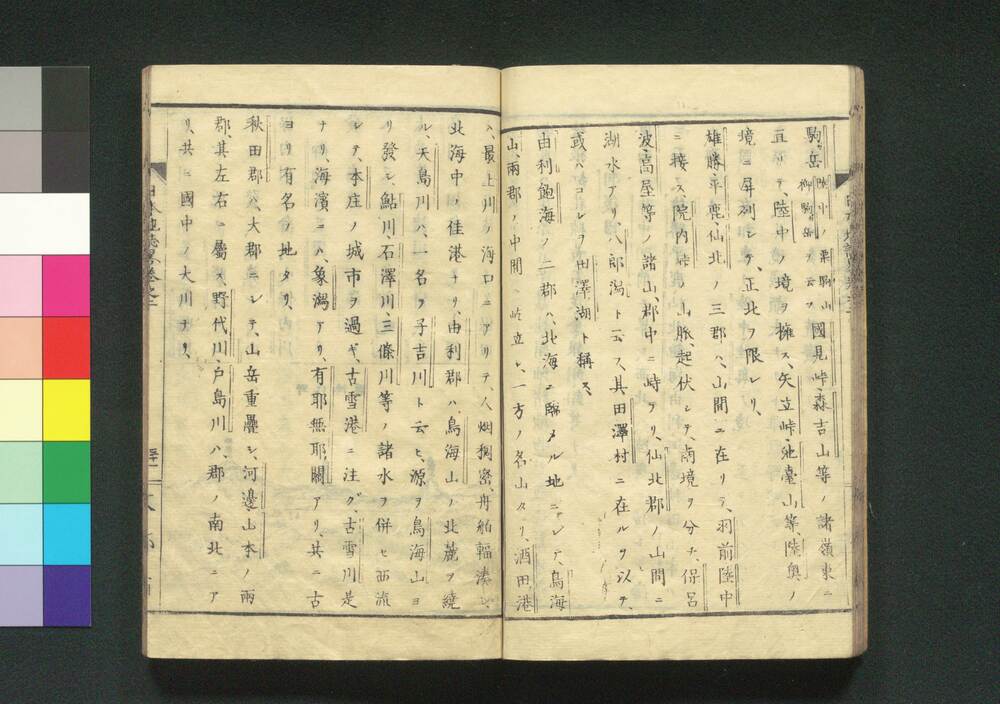 駒岳 陸中ノ御駒岳ト云フ 栗駒山 國見峠、森吉山等ノ諸嶺東ニ
亘リテ、陸中ノ境ヲ擁ス、矢立峠、弛臺山等、陸奧ノ
境ニ屏列シテ、正北ヲ限レリ、
雄勝、平鹿、仙北ノ三郡ハ、山間ニ在リテ、羽前陸中
ニ接ス、院内峠山脈起伏シテ、南境ヲ分チ、保呂
波、高屋等ノ諸山、郡中ニ峙テリ、仙北郡ノ山間ニ
湖水アリ、八郎潟ト云フ、其田澤村ニ在ルヲ以テ、
或ハコレヲ田澤湖ト稱ス、
由利、飽海ノ二郡ハ、北海ニ臨メル地ニシテ、鳥海
山、兩郡ノ中間ニ屹立シ、一方ノ名山タリ、酒田港
ハ、最上川ノ海口ニアリテ、人烟稠密、舟舶輻湊シ、
北海中ノ佳港ナリ、由利郡ハ、鳥海山ノ北麓ヲ繞
ル、天島川ハ、一名ヲ子吉川ト云ヒ、源ヲ鳥海山ヨ
リ發シ、鮎川、石澤川、三條川等ノ諸水ヲ併セ西流
シテ、本庄ノ城市ヲ過ギ、古雪港ニ注グ、古雪川是
ナリ、海濱ニハ、象潟アリ、有耶無耶關アリ、共ニ古
ヨリ有名ノ地タリ、
秋田郡ハ、大郡ニシテ、山岳重疊シ、河邊、山本ノ兩
郡、其左右ニ屬ス、野代川、戸島川ハ、郡ノ南北ニア
リ、共ニ國中ノ大川ナリ、
日本地誌畧卷之三